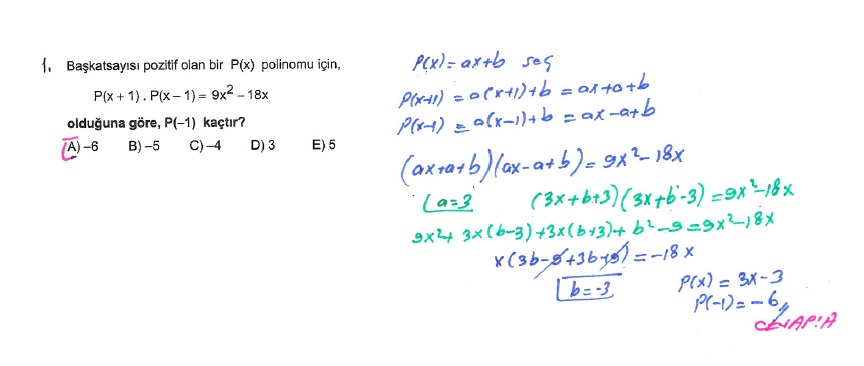 1. Başkatsayısı pozitif olan bir P(x) polinomu için,
P(x + 1) . P(x − 1) = 9x² − 18x
olduğuna göre, P(−1) kaçtır?
A) −6 B) −5 C) −4 D) 3 E) 5
P(x) = ax+b seç
P(x+1) = a(x+1)+b = ax+a+b
P(x-1) = a(x-1)+b = ax-a+b
(ax+a+b)(ax-a+b) = 9x²-18x
a=3 (3x+b+3)(3x+b-3) = 9x²-18x
9x²+3x(b-3)+3x(b+3)+b²-9=9x²-18x
x(3b-9+3b+9) = -18x
b=-3
P(x) = 3x-3
P(-1) = -6
CEVAP:A